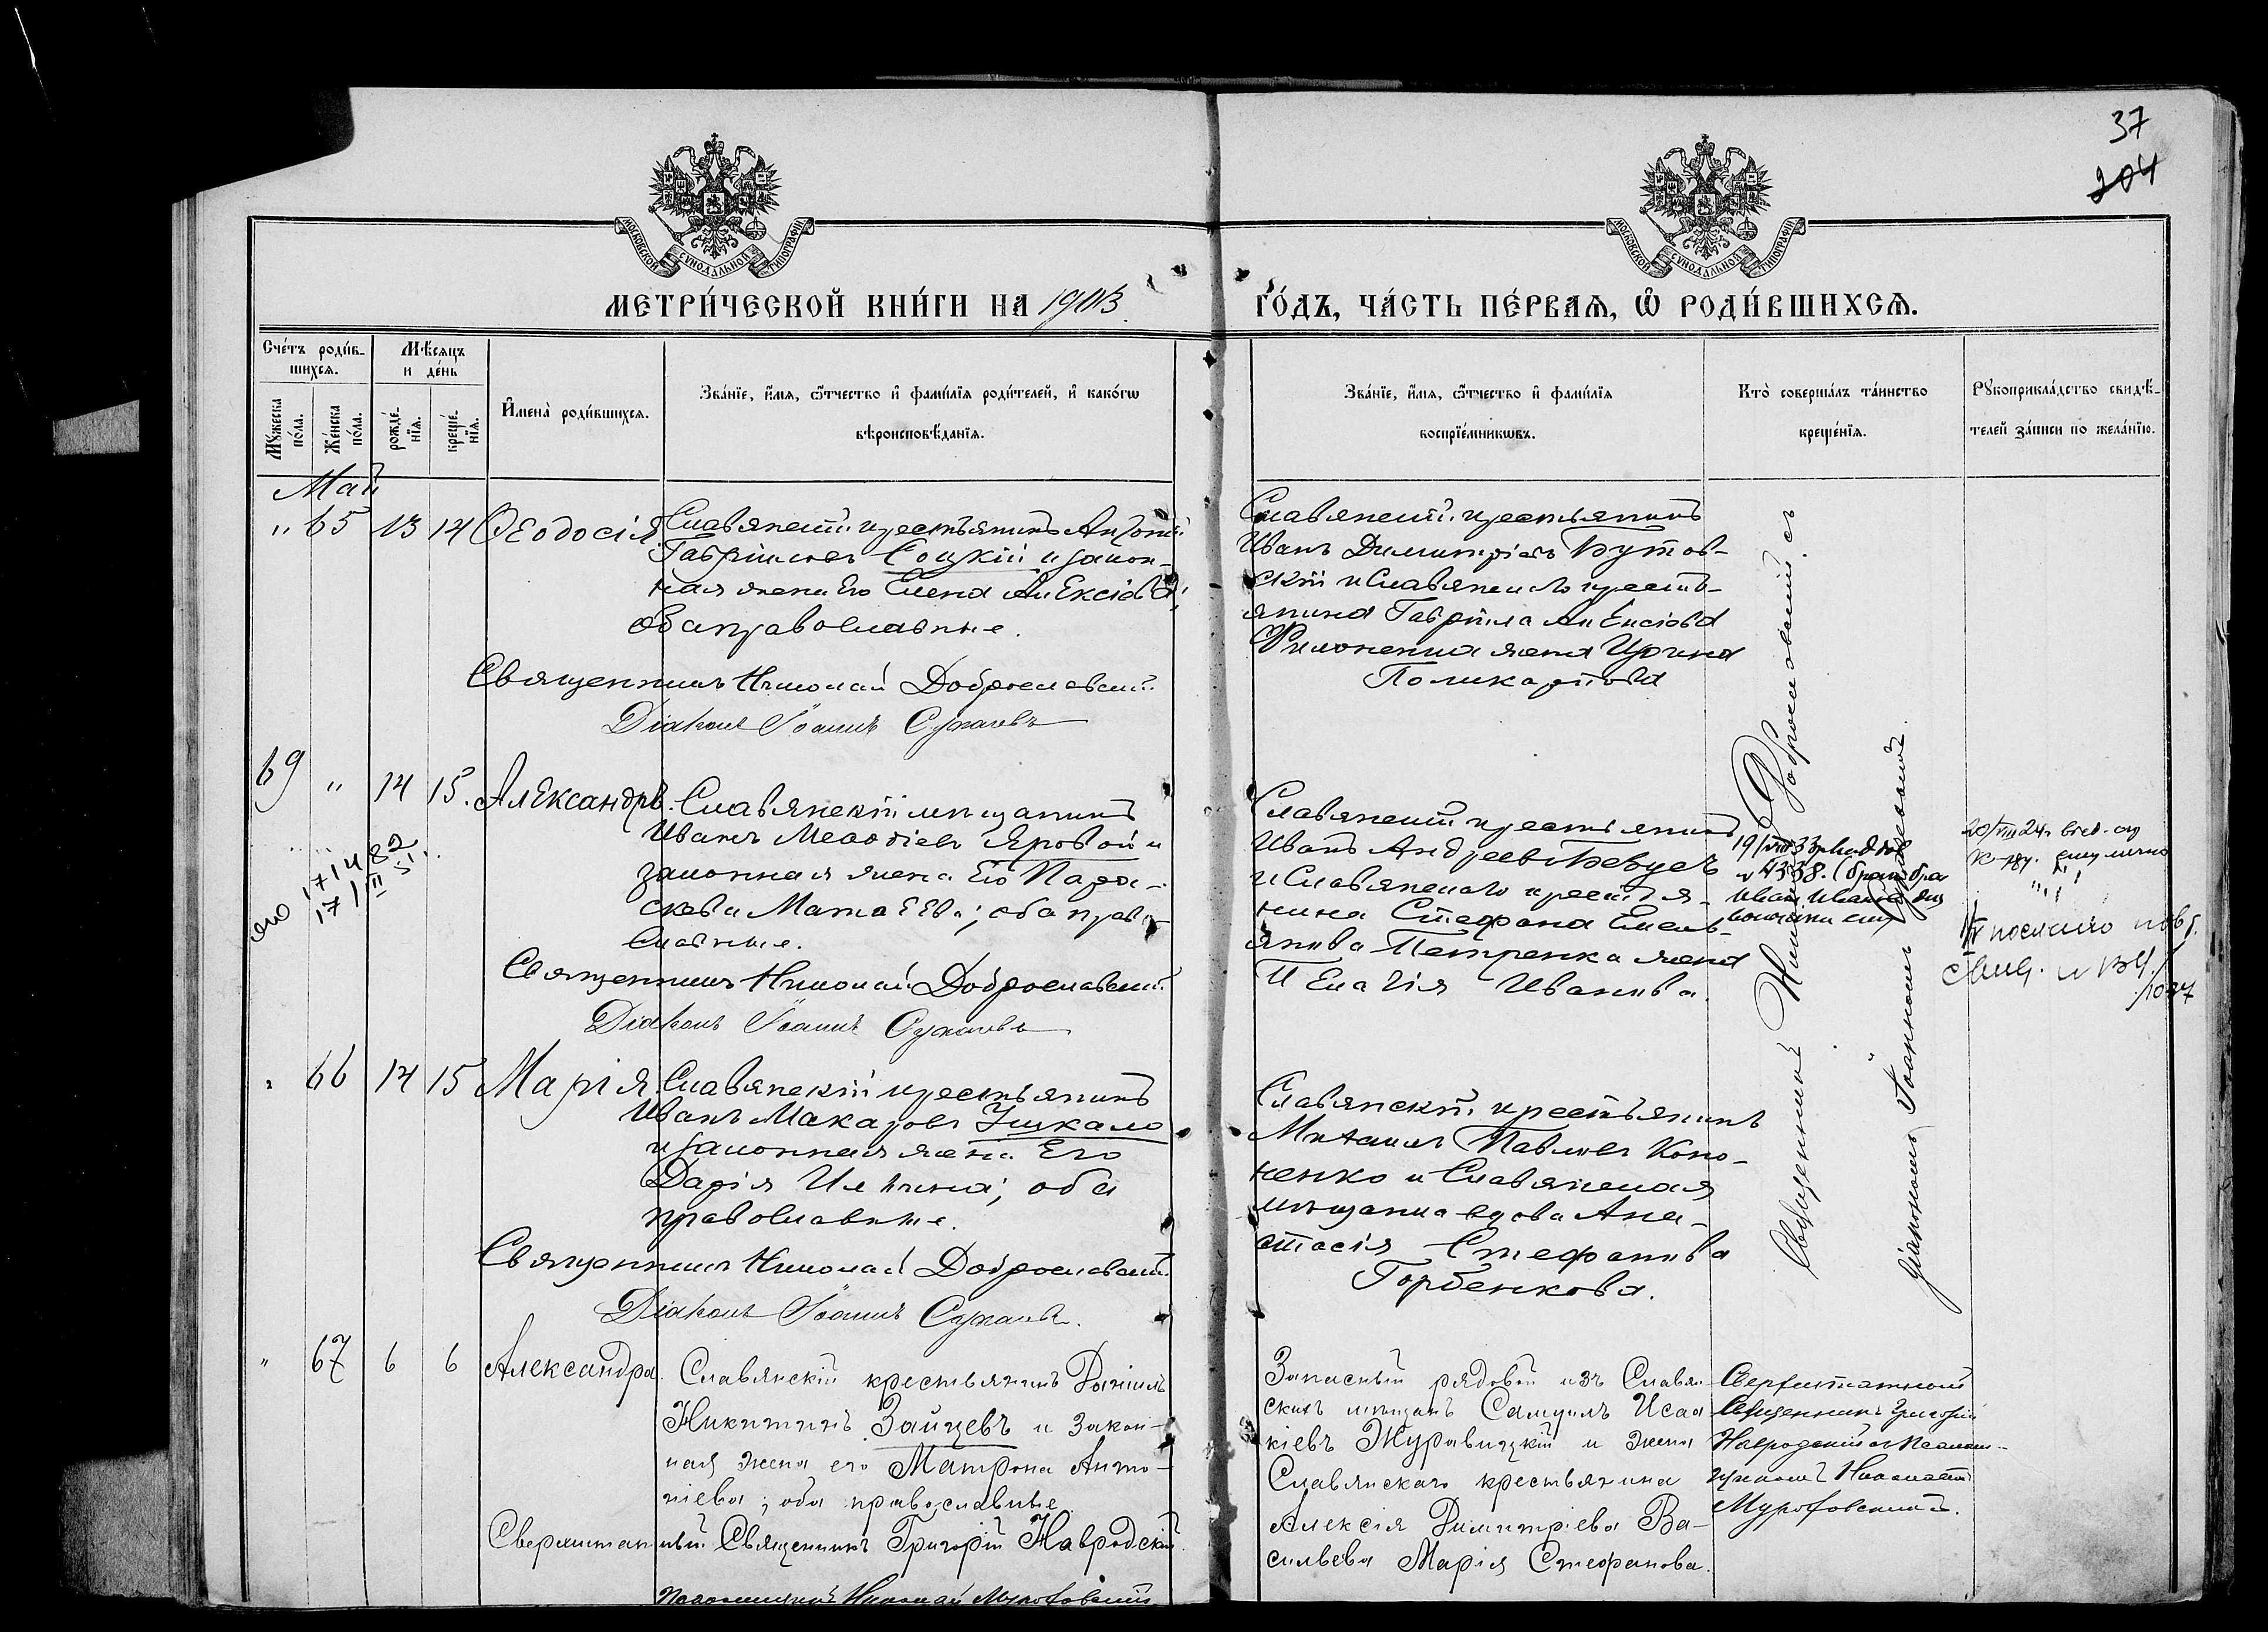 37
204
МОСКОВСКОЙ СѴНОДАЛЬНОЙ ТИПОГРАФІИ
МОСКОВСКОЙ СѴНОДАЛЬНОЙ ТИПОГРАФІИ
МЕТРИ́ЧЕСКОЙ КНИ́ГИ НА 1903
ГО́ДЪ, ЧА́СТЬ ПЕ́РВАЯ, Ѡ҆ РОДИ́ВШИХСѦ.
Сче́тъ роди́в-
шихсѧ.
Мꙋ́жеска по́ла.
Же́нска по́ла.
Мѣ́сѧцъ
и де́нь
рожде́-
нїѧ.
креще́-
нїѧ.
И҆мена̀ роди́вшихсѧ.
Зва́нїе, и҆́мѧ, ѻ҆́тчество и҆ фами́лїѧ роди́телей, и҆ како́гѡ
вѣроисповѣ́данїѧ.
Зва́нїе, и҆́мѧ, ѻ҆́тчество и҆ фами́лїѧ
воспрїе́мникѡвъ.
Кто̀ соверша́лъ та́инство
креще́нїѧ.
Рꙋкоприкла́дство свидѣ́-
телей за́писи по жела́нїю.
Май
" 65 13 14 Ѳеодосія
Славянскій крестьянинъ Антоній
Гавріиловъ Соцкій и закон-
ная жена его Елена Алексіева;
оба православные.
Священникъ Николай Доброславскій
Діаконъ Іоаннъ Сукачевъ
Славянскій крестьянинъ
Иванъ Димитріевъ Бутов-
скій и Славянскаго кресть-
янина Гавріила Алексіева
Филоненка жена Ирина
Поликарпова
69 " 14 15. Александръ.
Славянскій мѣщанинъ
Иванъ Меѳодіевъ Яровой и
законная жена его Пара-
скева Матѳеева; оба право-
славные.
Священникъ Николай Доброславскій
Діаконъ Іоаннъ Сукачевъ
Славянскій крестьянинъ
Иванъ Андреевъ Бевзъ
и Славянскаго крестья-
нина Стефана Емель-
янова Петренка жена
Пелагія Иванова.
" 66 14 15 Марія
Славянскій крестьянинъ
Иванъ Макаровъ Ушкало
и законная жена его
Дарія Ильина; оба
православные.
Священникъ Николай Доброславскій
Діаконъ Іоаннъ Сукачевъ.
Славянскій крестьянинъ
Михаилъ Павловъ Коно-
ненко и Славянская
мѣщанка вдова Ана-
стасія Стефанова
Горбенкова.
Священникъ Николай Доброславскій съ
діакономъ Іоанномъ Сукачевымъ.
" 67 6 6 Александра.
Славянскій крестьянинъ Даніилъ
Никитинъ Зайцевъ и закон-
ная жена его Матрона Анто-
ніева; оба православные.
Сверхштатный Священникъ Григорій Навродскій.
Псаломщикъ Николай
Запасный рядовой изъ Славян-
скихъ мѣщанъ Самуилъ Исаа-
кіевъ Журавицкій и жена
Славянскаго крестьянина
Алексія Димитріева Ва-
сильева Марія Стефанова.
Сверхштатный
Священникъ Григорій
Навродскій съ Псалом-
щикомъ Николаемъ